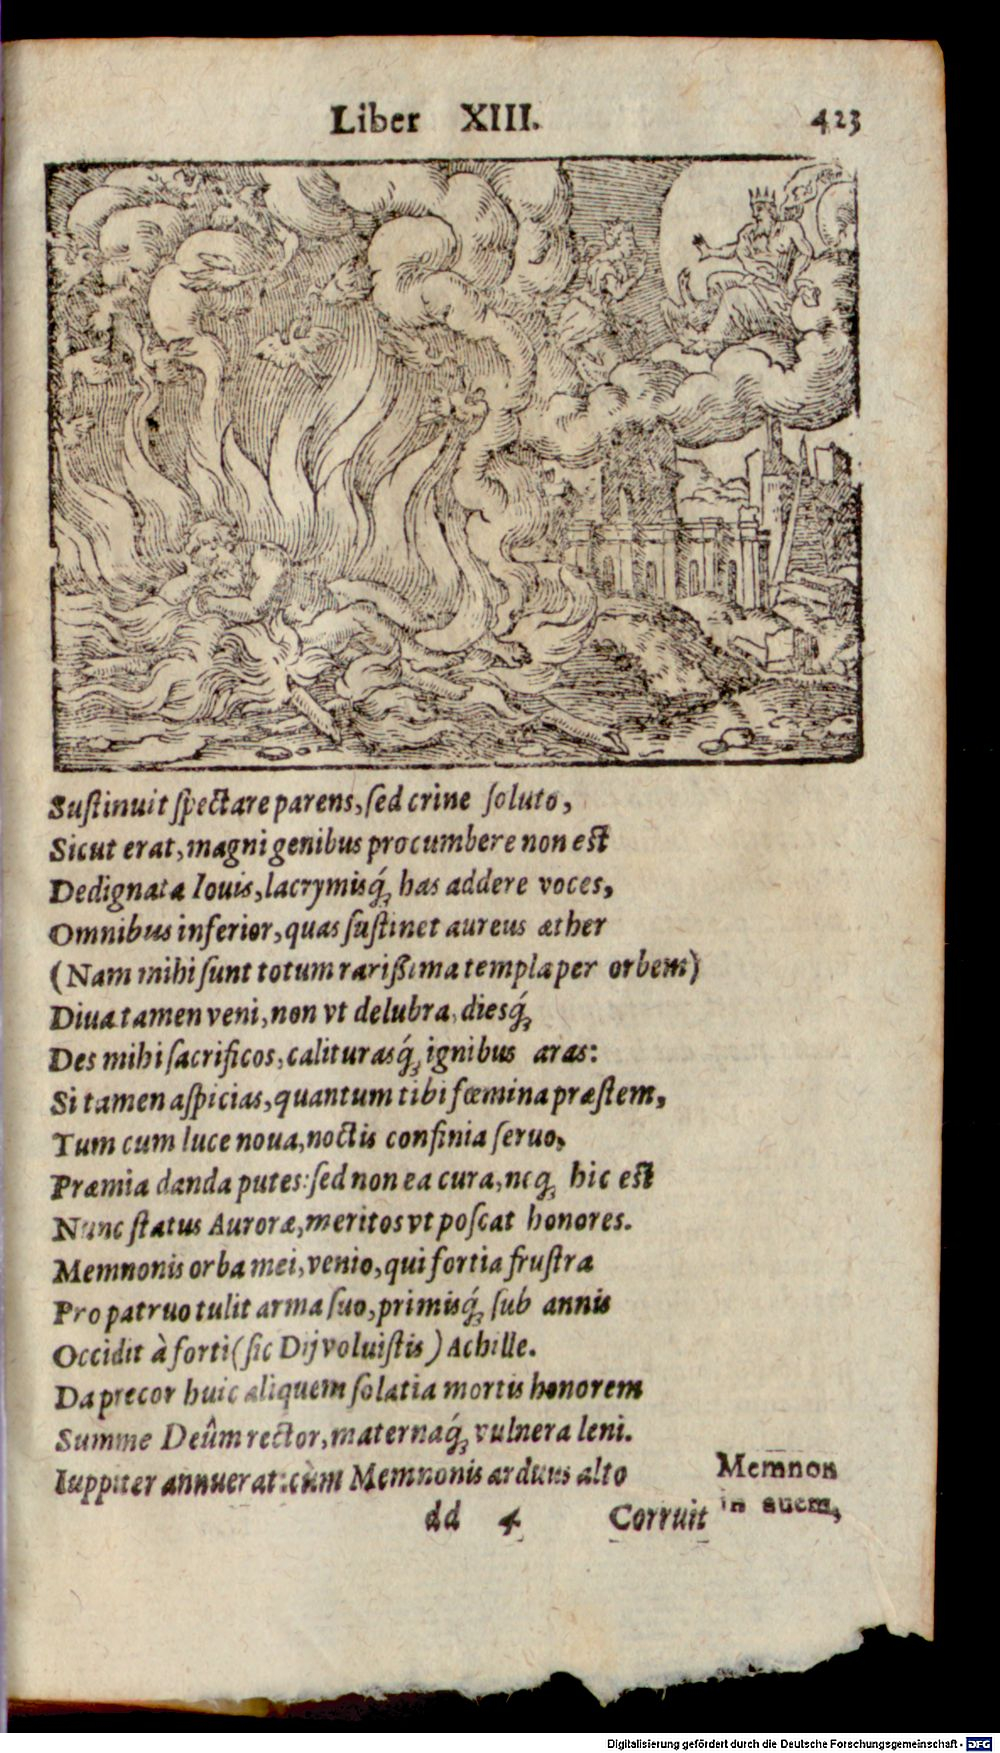 Liber XIII. 423
Suſtinuit ſpectare parens, ſed crine ſoluto,
Sicut erat, magni genibus procumbere non eſt
Dedignata Iouis, lacrymisq́; has addere voces,
Omnibus inferior, quas ſuſtinet aureus æther
(Nam mihi ſunt totum rariſsima templa per orbem)
Diua tamen veni, non vt delubra, diesq́;
Des mihi ſacrificos, calituras q́; ignibus aras:
Si tamen aſpicias, quantum tibi fœmina præſtem,
Tum cum luce noua, noctis confinia ſeruo,
Præmia danda putes: ſed non ea cura, neq; hic eſt
Nunc ſtatus Auroræ, meritos vt poſcat honores.
Memnonis orba mei, venio, qui fortia fruſtra
Pro patruo tulit arma ſuo, primisq́; ſub annis
Occidit à forti (ſic Dij voluiſtis) Achille.
Da precor huic aliquem ſolatia mortis honorem
Summe Deûm rector, maternaq́; vulnera leni.
Iuppiter annuerat: cùm Memnonis arduus alto
Memnon
in auem,
dd 4 Corruit
Digitalisierung gefördert durch die Deutsche Forschungsgemeinschaft - DFG